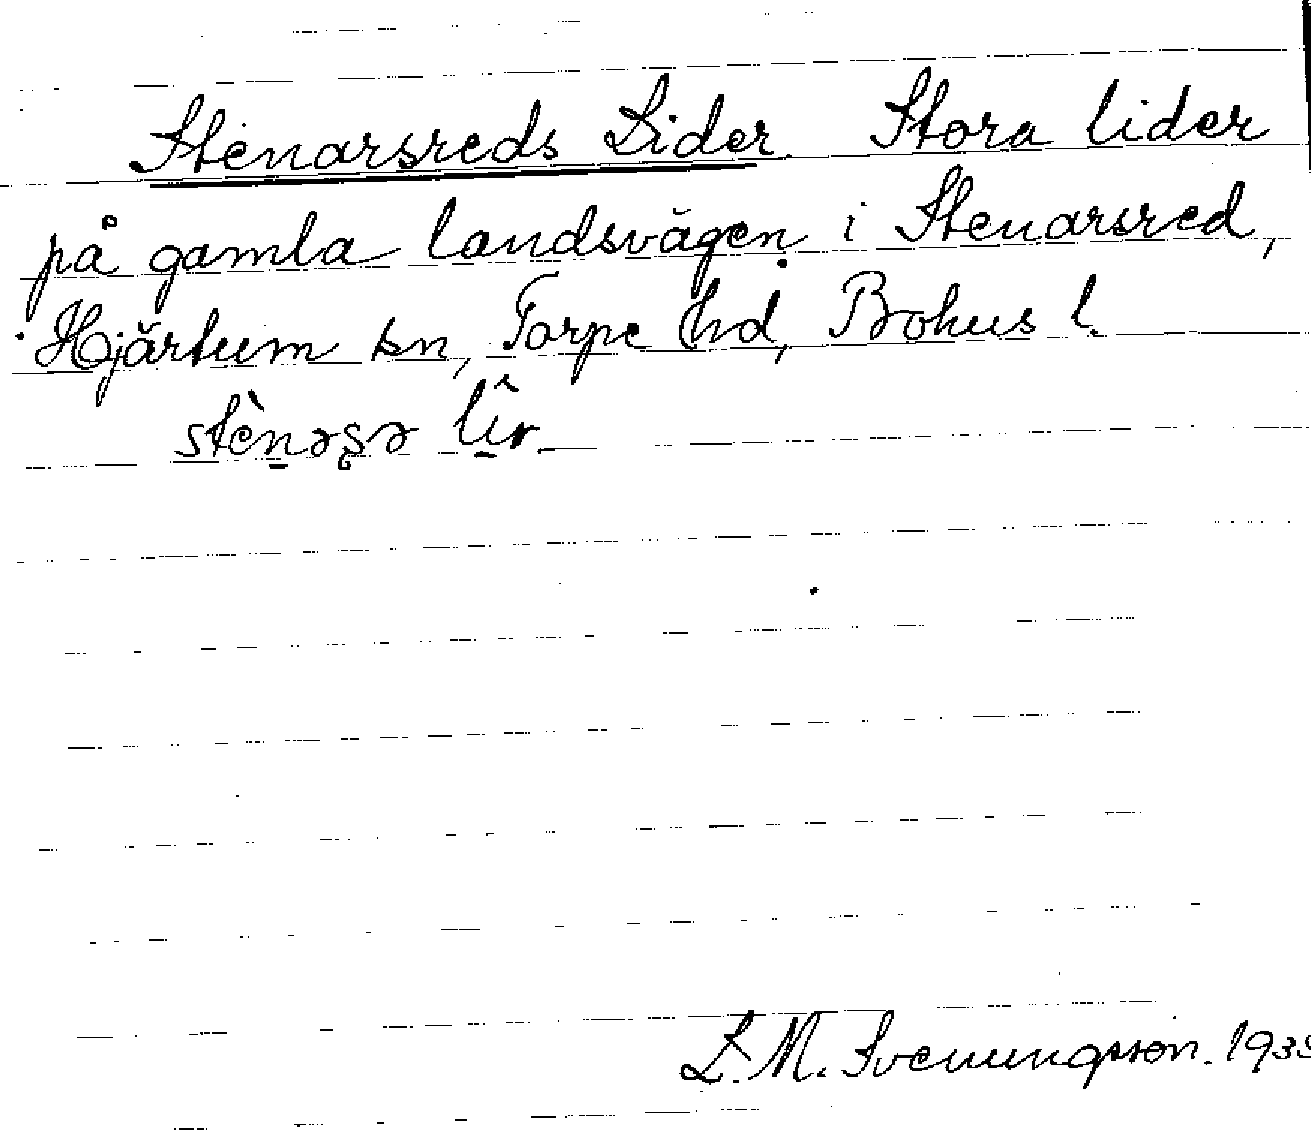 Stenarsreds Lider. Stora lider
på gamla landsvägen i Stenarsred,
Hjärtum sn, Torpe hd, Bohus l.
stènəsə lîr.
L. M. Svenungsson. 193